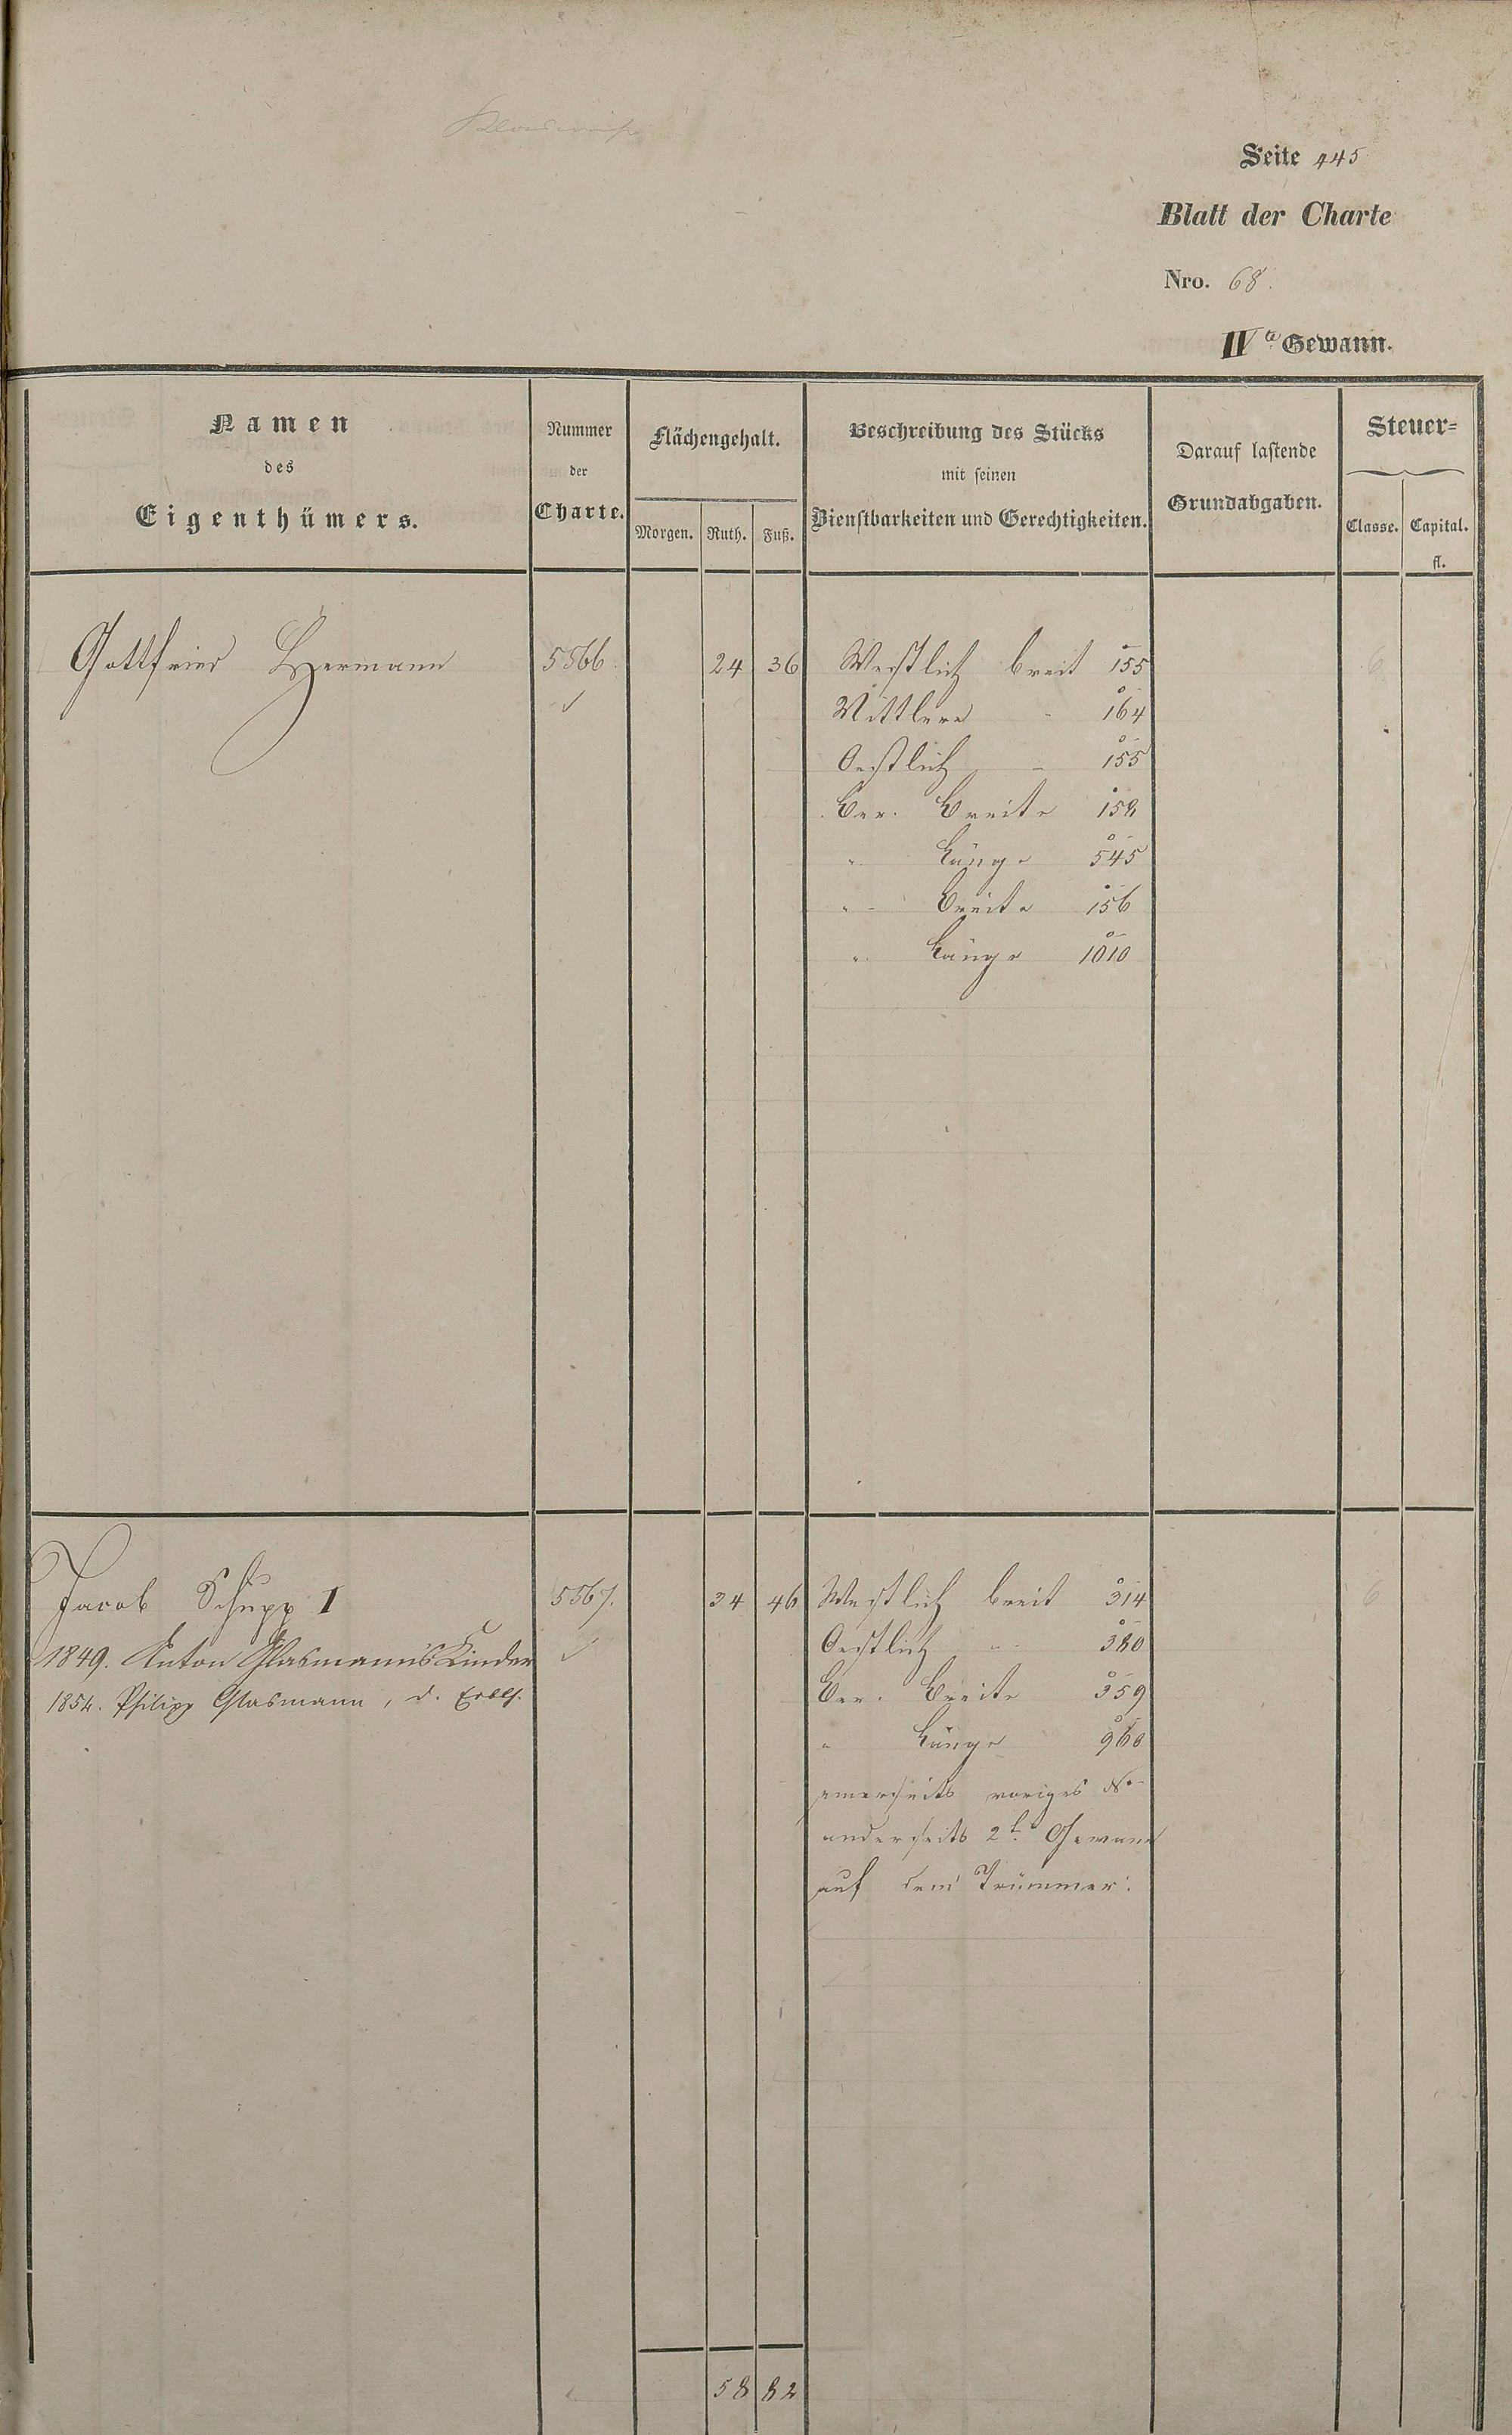 Seite 445
Blatt der Charte
Nro. 68.
IV te Gewann.
Namen
des
Eigenthümers.
Nummer
der
Charte.
Flächengehalt.
Morgen. Ruth. Fuß.
Beschreibung des Stücks
mit seinen
Dienstbarkeiten und Gerechtigkeiten.
Darauf lastende
Grundabgaben.
Steuer-
Classe. Capital.
fl.
Gottfried Hermann 5566. 24 36 Westlich breit 155 6
Mittlere " 164
Oestlich " 155
Ber. Breite 158
" Länge 545
" Breite 156
" Länge 1010
Jacob Schupp I 5567. 34 46 Westlich breit 314 6
1849. Anton Glasmann's Kinder Oestlich " 380
1854. Philipp Glasmann, d. Ber. Breite 359
" Länge 960
einerseits voriges No
anderseits 2t. Gewann
auf dem Trümmer.
58 82